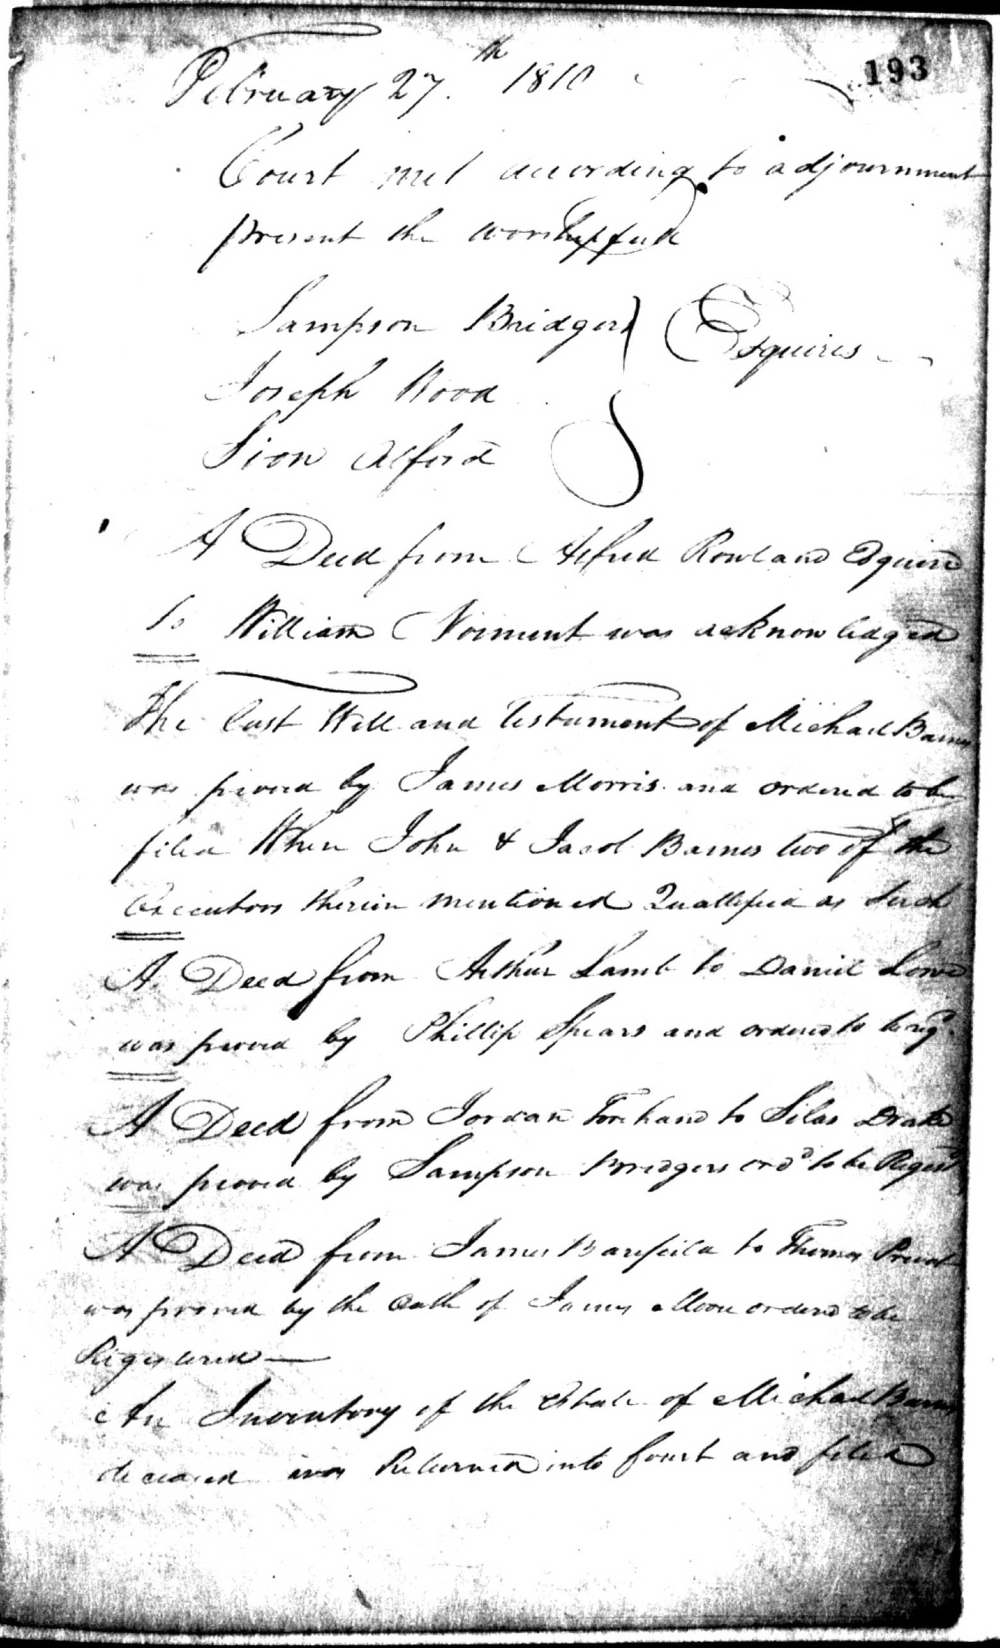 193
February 27th 1810
Court met according to adjournment
present the worshipfull
Sampson Bridgers } Esquires
Joseph Wood
Sion Alford
A Deed from Alfred Rowland Esquire
to William Norment was acknowledged
The last Will and Testument of Michael Barnes
was proved by James Morris and ordered to be
filed When John & Jacob Barnes two of the
Executors therein mentioned Quallified as Such
A Deed from Arthur Lamb to Daniel Lowe
was proved by Phillip Spears and ordered to be reg
A Deed from Jordan Forehand to Silas Drake
was proved by Sampson Bridgers ord to be Regest
A Deed from James Barefield to Thomas
was proved by the Oath of James Moore ordered to be
Registered
An Inventory of the Estate of Michael Barnes
deceased was Returned into Court and filed